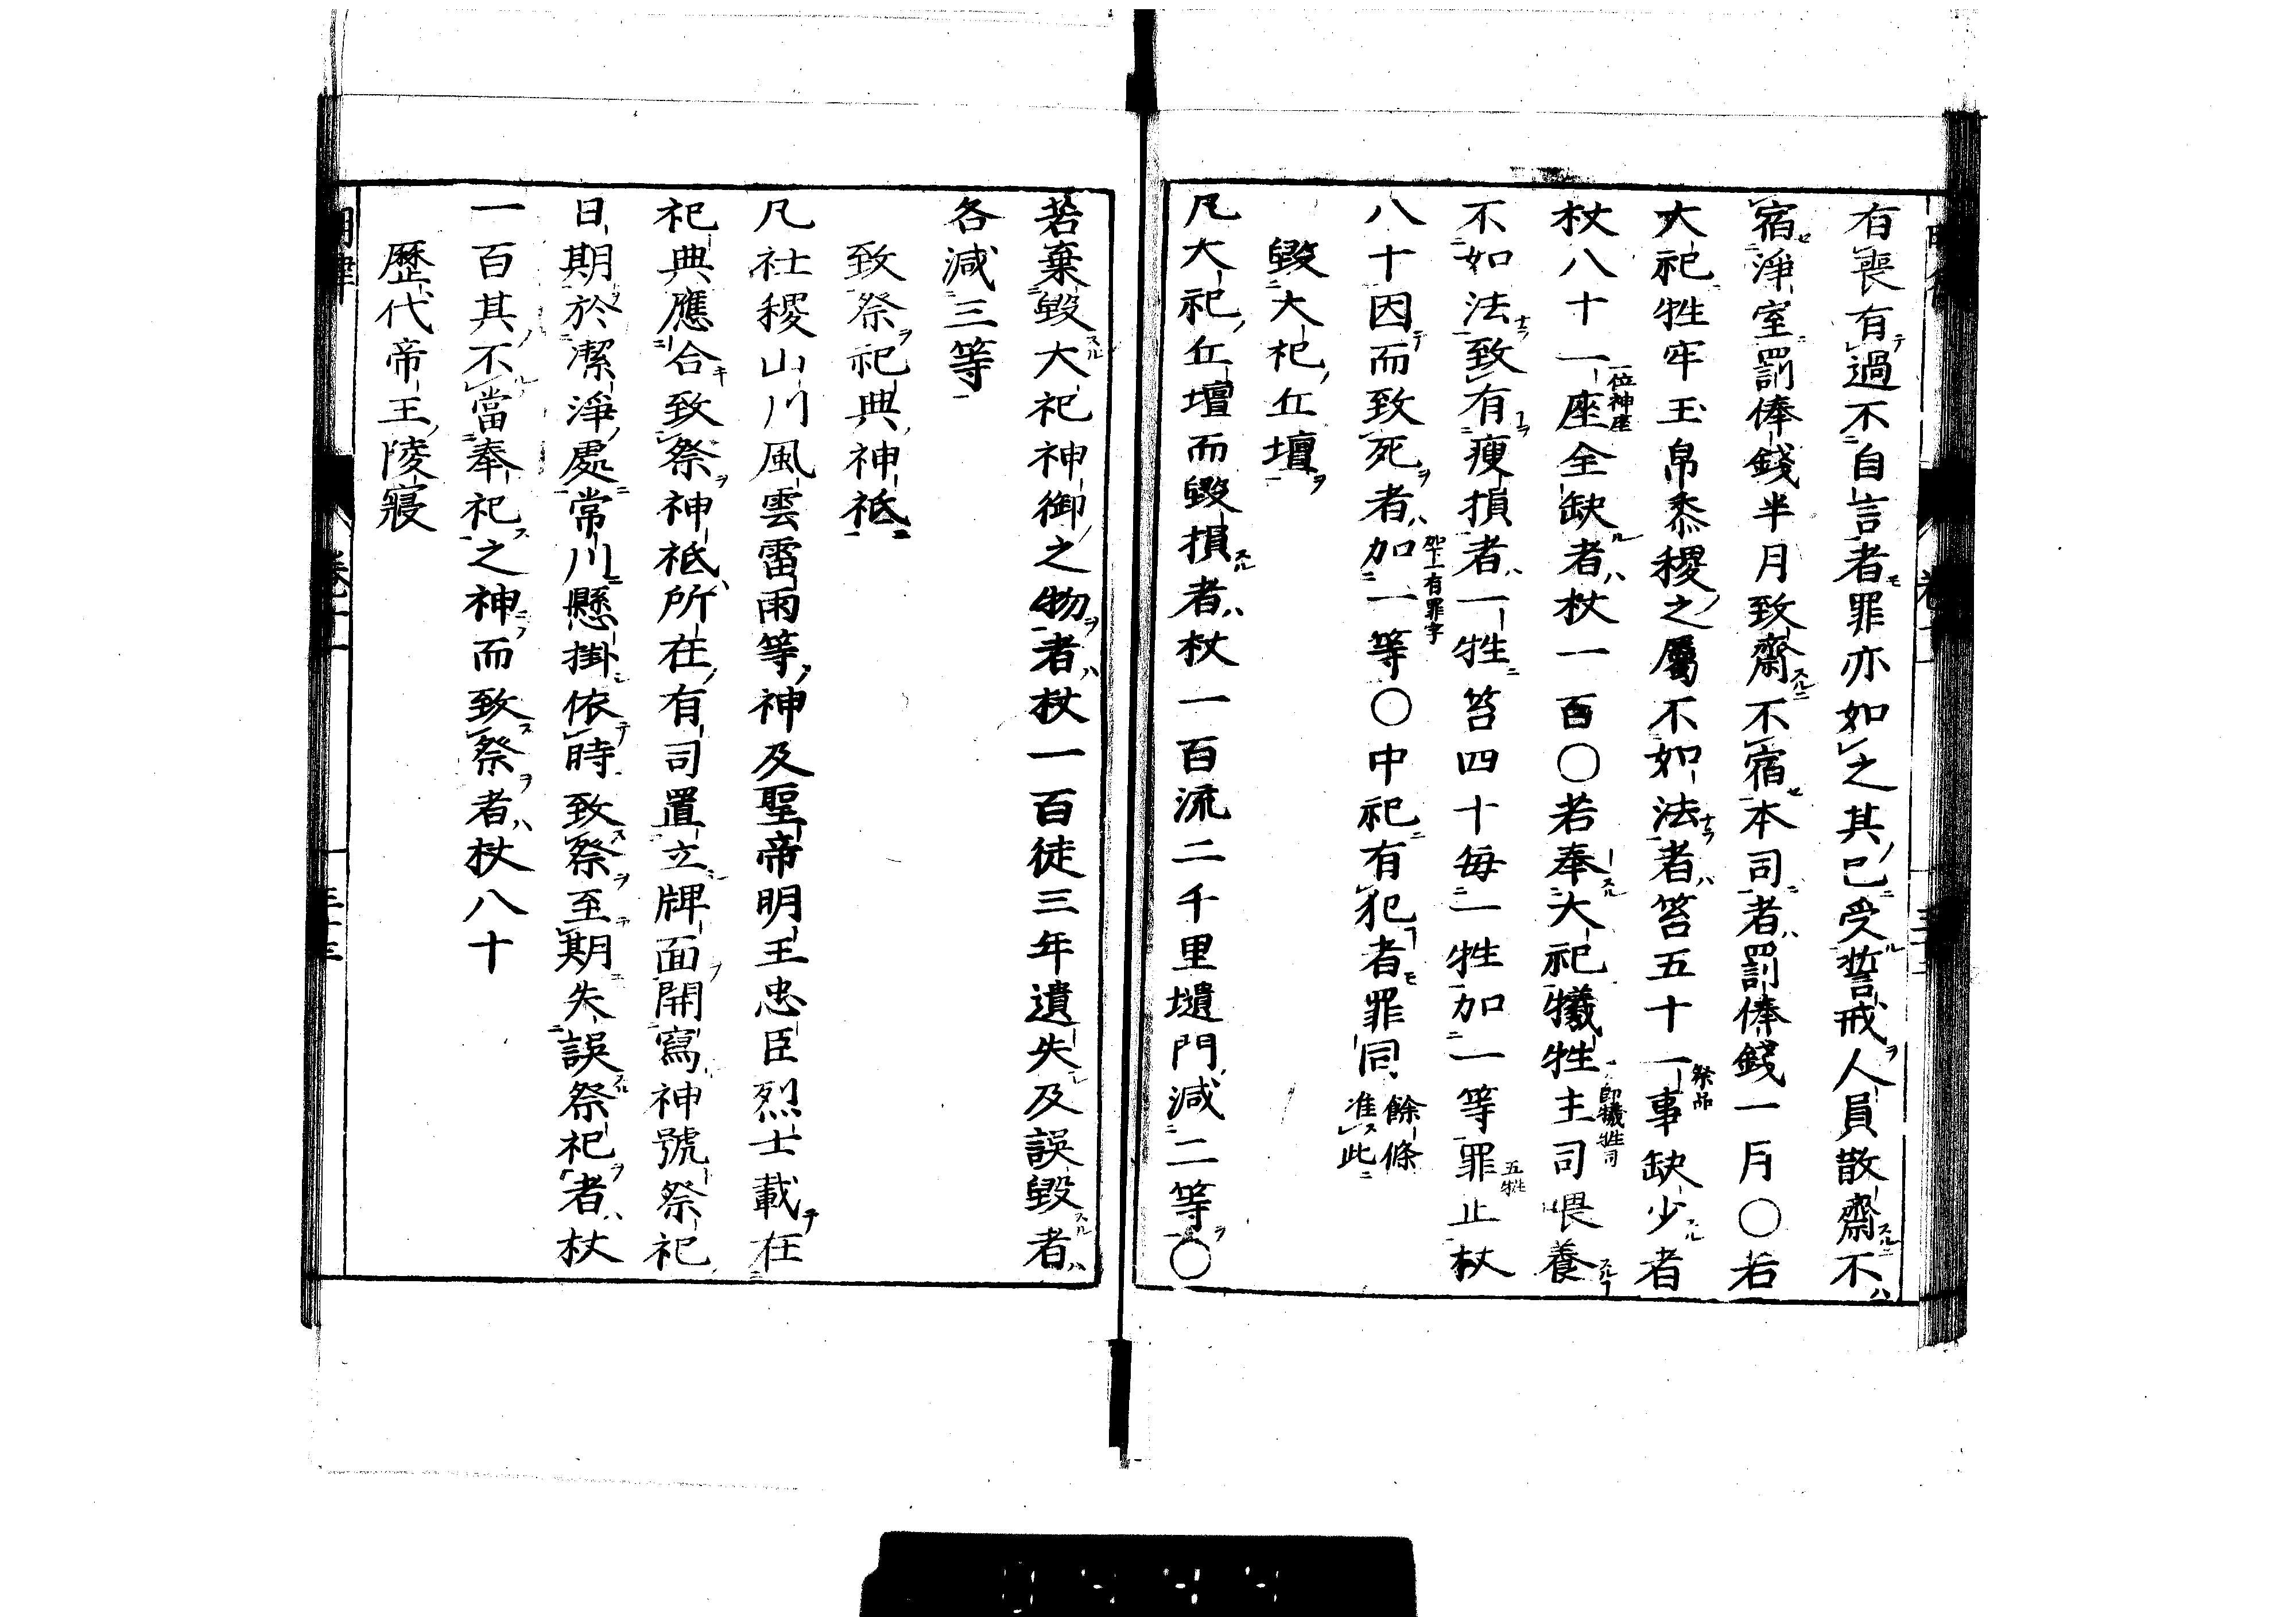 有喪有過不自言者罪亦如之其已受誓戒人員散齋不
宿淨室罰俸錢半月致齋不宿本司者罰俸錢一月〇若
大祀牲牢玉帛黍稷之屬不如法者笞五十一事缺少者
祭品
杖八十一座全缺者杖一百〇若奉大祀犧牲主司喂養
一位神座
即犧牲司
不如法致有瘦損者一牲笞四十每一牲加一等罪止杖
五牲
八十因而致死者加一等〇中祀有犯者罪同餘條准此
加上有罪字
毀大祀丘壇
凡大祀丘壇而毀損者杖一百流二千里壝門減二等〇
若棄毀大祀神御之物者杖一百徒三年遺失及誤毀者
各減三等
致祭祀典神祇
凡社稷山川風雲雷雨等神及聖帝明王忠臣烈士載在
祀典應合致祭神祇所在有司置立牌面開寫神號祭祀
日期於潔淨處常川懸掛依時致祭至期失誤祭祀者杖
一百其不當奉祀之神而致祭者杖八十
歷代帝王陵寢